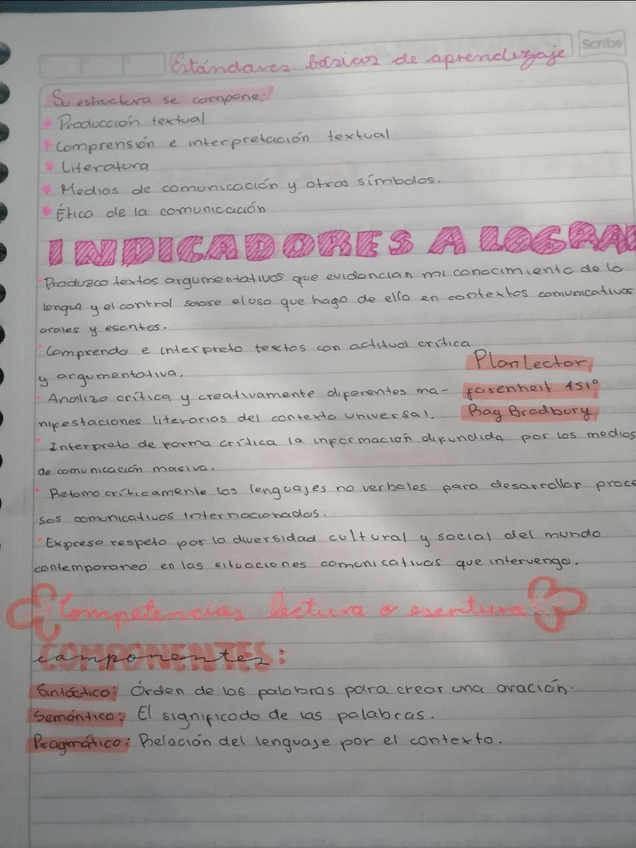 Scribe
Estándares básicos de aprendizaje
Su estructura se compone:
Producción textual
Comprensión e interpretación textual
Literatura
Medios de comunicación y otros símbolos.
Ética de la comunicación
INDICADORES A LOGRAR
Produzco textos argumentativos que evidencian mi conocimiento de la
lengua y el control sobre el uso que hago de ella en contextos comunicativos
orales y escritos.
Comprendo e interpreto textos con actitud crítica
y argumentativa.
Plan lector
Analizo crítica y creativamente diferentes ma-
farenheit 451°
nifestaciones literarias del contexto universal.
Ray Bradbury
Interpreto de forma crítica la información difundida por los medios
de comunicación masiva.
Retomo críticamente los lenguajes no verbales para desarrollar proce
sos comunicativos internacionados.
Expreso respeto por la diversidad cultural y social del mundo
contemporaneo en las situaciones comunicativas que intervengo.
Competencias lectura o escritura
COMPONENTES
componentes:
Sintáctico: Órden de las palabras para crear una oración.
Semántico: El significado de las palabras.
Pragmático: Relación del lenguaje por el contexto.